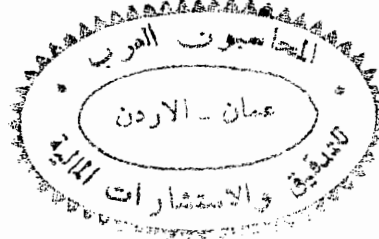 المحاسبون العرب
عمان - الاردن
للتدقيق والاستشارات المالية